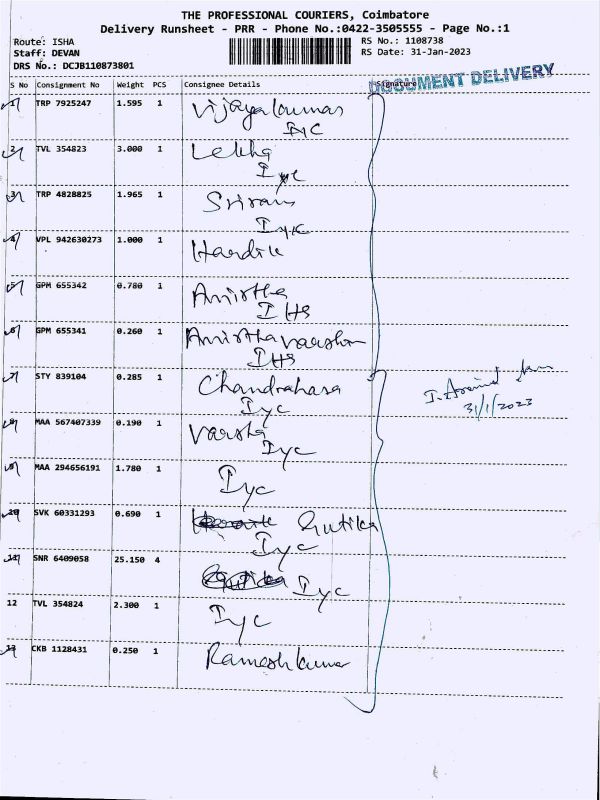 THE PROFESSIONAL COURIERS, Coimbatore
Delivery Runsheet - PRR - Phone No.:0422-3505555 - Page No.:1
Route: ISHA
Staff: DEVAN
DRS No.: DCJB110873801
RS No.: 1108738
RS Date: 31-Jan-2023
DOCUMENT DELIVERY
S No Consignment No Weight PCS Consignee Details Signature
1 TRP 7925247 1.595 1 Vijayakumar
IYC
2 TVL 354823 3.000 1 Lekha
IYC
3 TRP 4828825 1.965 1 Sriram
IYC
4 VPL 942630273 1.000 1 Hardik
5 GPM 655342 0.780 1 Amirtha
IHS
6 GPM 655341 0.260 1 Amirthavarshan
IHS
7 STY 839104 0.285 1 Chandrahasa
IYC
31/1/2023
8 MAA 567407339 0.190 1 Varsha
IYC
9 MAA 294656191 1.780 1 IYC
10 SVK 60331293 0.690 1 Gutika
IYC
11 SNR 6409058 25.150 4 IYC
12 TVL 354824 2.300 1 IYC
13 CKB 1128431 0.250 1 Rameshkumar